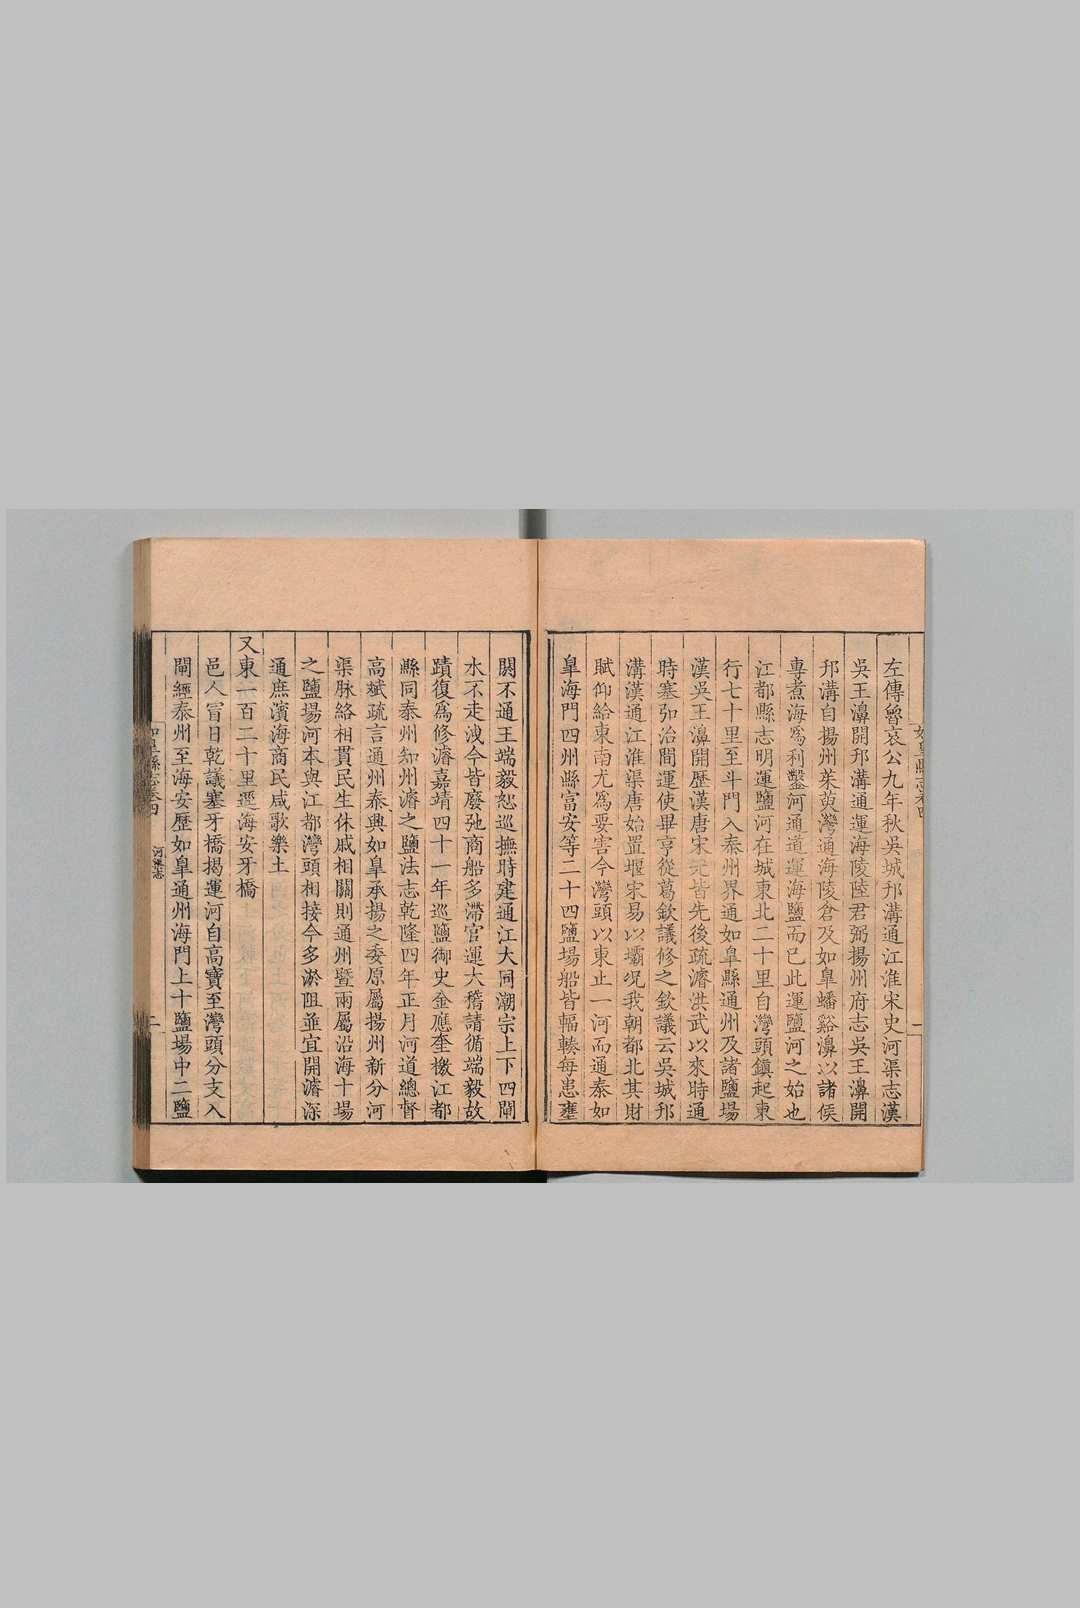 左傳魯哀公九年秋吳城邗溝通江淮宋史河渠志漢
吳王濞開邗溝通運海陵陸君弼揚州府志吳王濞開
邗溝自揚州茱萸灣通海陵倉及如皋蟠谿濞以諸侯
專煮海爲利鑿河通道運海鹽而已此運鹽河之始也
江都縣志明運鹽河在城東北二十里自灣頭鎮起東
行七十里至斗門入泰州界通如皋縣通州及諸鹽場
漢吳王濞開歷漢唐宋元皆先後疏濬洪武以來時通
時塞弘治間運使畢亨從葛欽議修之欽議云吳城邗
溝漢通江淮渠唐始置堰宋易以壩况我朝都北其財
賦仰給東南尤爲要害今灣頭以東止一河而通泰如
皋海門四州縣富安等二十四鹽場船皆輻輳每患壅
閼不通王端毅恕巡撫時建通江大同潮宗上下四閘
水不走洩今皆廢弛商船多滯官運大稽請循端毅故
蹟復爲修濬嘉靖四十一年巡鹽御史金應奎檄江都
縣同泰州知州濬之鹽法志乾隆四年正月河道總督
高斌疏言通州泰興如皋承揚之委原屬揚州新分河
渠脉絡相貫民生休戚相關則通州暨兩屬沿海十場
之鹽場河本與江都灣頭相接今多淤阻並宜開濬深
通庶濱海商民咸歌樂土
又東一百二十里逕海安牙橋
邑人冒日乾議塞牙橋揭運河自高寶至灣頭分支入
閘經泰州至海安歷如皋通州海門上十鹽場中二鹽
如皋縣志卷四
河渠志
二